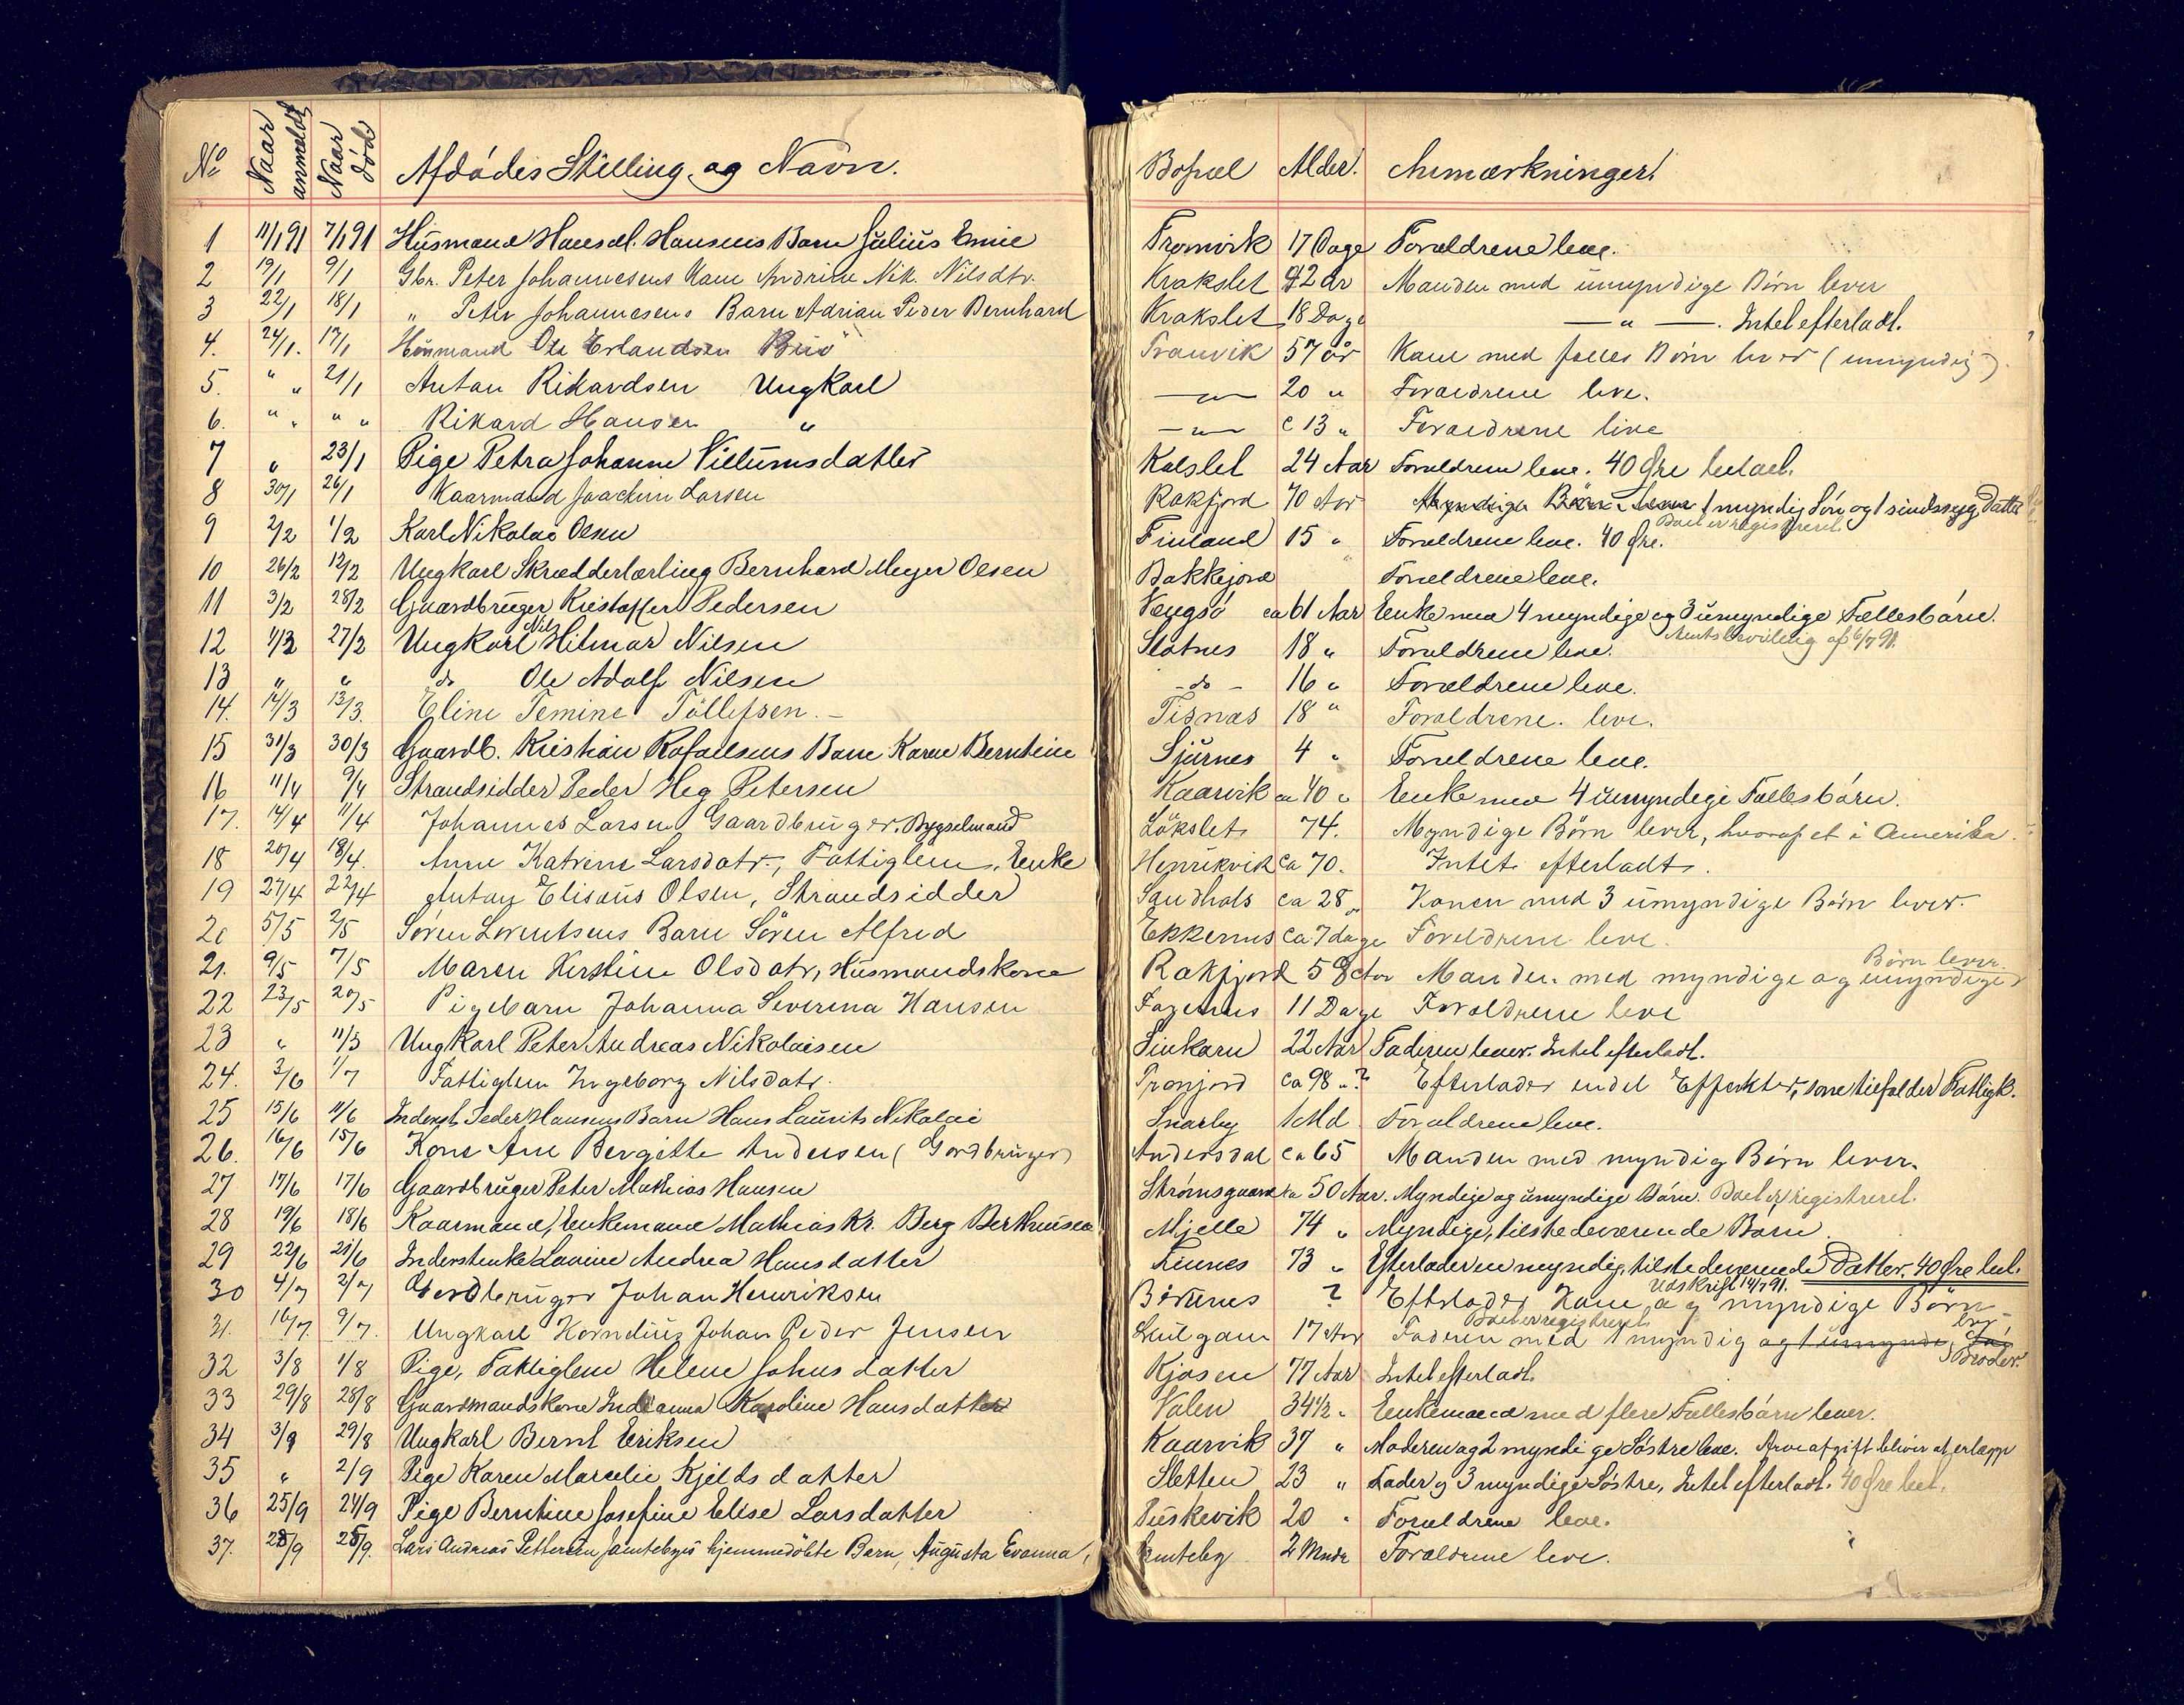 No Naar anmeldt Naar död. Afdödes Stilling og Navn. Bopæl Alder. Anmærkninger!
1 11/1 91 7/1 91 Husmand Hans M. Hansens Barn Julius Emil Tromvik 17 Dage Forældrene leve.
2 19/1 9/1 Gbr. Peter Johannesens Kone Andrine Nik. Nilsdtr. Krakslet 42 År Manden med umyndige Börn lever
3 22/1 18/1 " Peter Johannesens Barn Adrian Peder Bernhard Krakslet 18 Dage — " — . Intet efterladt.
4. 24/1. 17/1 Husmand Ole Erlandsen Tromvik 57 år Kone med fælles Börn lever (umyndig).
5. " " 21/1 Anton Rikardsen Ungkarl — " — 20 " Forældrene leve.
6. " " " " Rikard Hansen " — " — c 13 " Forældrene leve
7 " 23/1 Pige Petra Johanne Villumsdatter Kalslet 24 Aar Forældrene leve. 40 Øre betalt.
8 30/1 26/1 Kaarmand Joachim Larsen Rakfjord 70 Aar Myndige Börn leve 1 myndig Sön og 1 sindssyg Datter
Boet er registreret
9 2/2 1/2 Karl Nikolai Olsen Finland 15 " Forældrene leve. 40 Øre.
10 26/2 12/2 Ungkarl Skrædderlærling Bernhard Meyer Olsen Bakkejord Forældrene leve.
11 3/2 28/2 Gaardbruger Kristoffer Pedersen Vengsö ca 61 Aar Enke med 4 myndige og 3 umyndige Fællesbörn.
Amtsbevilling af 6/7 91.
12 1/3 27/2 Ungkarl Nils Hilmar Nilsen Slatnes 18 " Forældrene leve.
13 " " do Ole Adolf Nilsen - do - 16 " Forældrene leve.
14. 14/3 13/3. Eline Temine Tollefsen. — Tisnas 18 " Forældrene. leve.
15 31/3 30/3 Gaardb. Kristian Rafaelsens Barn Karen Berntine Sjurnes 4 " Forældrene leve.
16 11/4 9/4 Strandsidder Peder Heg Petersen Kaarvik ca 40 " Enke med 4 umyndige Fællesbörn.
17. 14/4 11/4 Johannes Larsen Gaardbruger. Bygselmand Lökslet 74. Myndige Börn lever, hvoraf et i Amerika.
18 20/4 18/4. Anne Katrine Larsdatr., Fattiglem, Enke Henrikvik ca 70. Intet efterladt.
19 27/4 22/4 Anton Elisæus Olsen, Strandsidder Sandhals ca 28 " Konen med 3 umyndige Börn lever.
20 5/5 2/5 Sören Lorentsens Barn Sören Alfred Ekkernes ca 7 dage Forældrene leve.
21. 9/5 7/5 Maren Kerstine Olsdatr, Husmandskone Rakfjord 58 Aar Manden med myndige og umyndige Börn lever.
22 23/5 20/5 Pigebarn Johanna Severina Hansen Fagernes 11 Dage Forældrene leve
23 " 11/3 Ungkarl Peter Andreas Nikolaisen Sinkarn 22 Aar Faderen lever. Intet efterladt.
24. 3/6 1/7 Fattiglem Ingeborg Nilsdatr. Tronjord ca 98 "? Efterlader endel Effekter, som tilfalder Fattigk.
25 15/6 11/6 Inderst Peder Hansens Barn Hans Laurits Nikolai Snarby 1 Md Forældrene leve.
26. 16/6 15/6 Kone Ane Bergitte Andersen (Gordbruger) Andersdal ca 65 Manden med myndig Börn lever.
27 17/6 17/6 Gaardbruger Peter Mathias Hansen Strømsgaard ca 50 Aar. Myndige og umyndige Börn. Boet er registreret.
28 19/6 18/6 Kaarmand, Enkemand Mathias Kr. Berg Bertheusen Mjelle 74 " Myndige, tilstedeværende Barn.
29 22/6 21/6 Inderstenke Lavine Andrea Hansdatter Finnes 73 " Efterlader en myndig, tilstedeværende Datter. 40 Øre bet.
Udskrift 14/7 91.
30 4/7 2/7 Gordbruger Johan Henriksen ? Efterlader Kone og myndige Börn
Boet er registreret
31. 16/7. 9/7. Ungkarl Kornelius Johan Peder Jensen 17 Aar Faderen med 1 myndig og 1 umyndig Broder.
32 3/8 1/8 Pige, Fattiglem Helene Johnsdatter Kjosen 77 Aar Intet efterladt.
33 29/8 28/8 Gaardmandskone Indianna Karoline Hansdatter Valen 34 1/2 " Enkemand med flere Fællesbörn lever.
34 3/9 29/8 Ungkarl Bernt Eriksen Kaarvik 37 " Moderen og 2 myndige Söstre leve. Arveafgift bliver at erlægge
35 " 2/9 Pige Karen Marselie Kjeldsdatter Sletten 23 " Fader og 3 myndige Söstre, Intet efterladt. 40 Øre bet.
36 25/9 24/9 Pige Berntine Josefine Elise Larsdatter Buskevik 20 " Forældrene leve.
37. 28/9 25/9. Lars Andreas Pettersen Jamtebys hjemmedöbte Barn, Augusta Evanna, Jamteby 2 Mndr Forældrene leve.